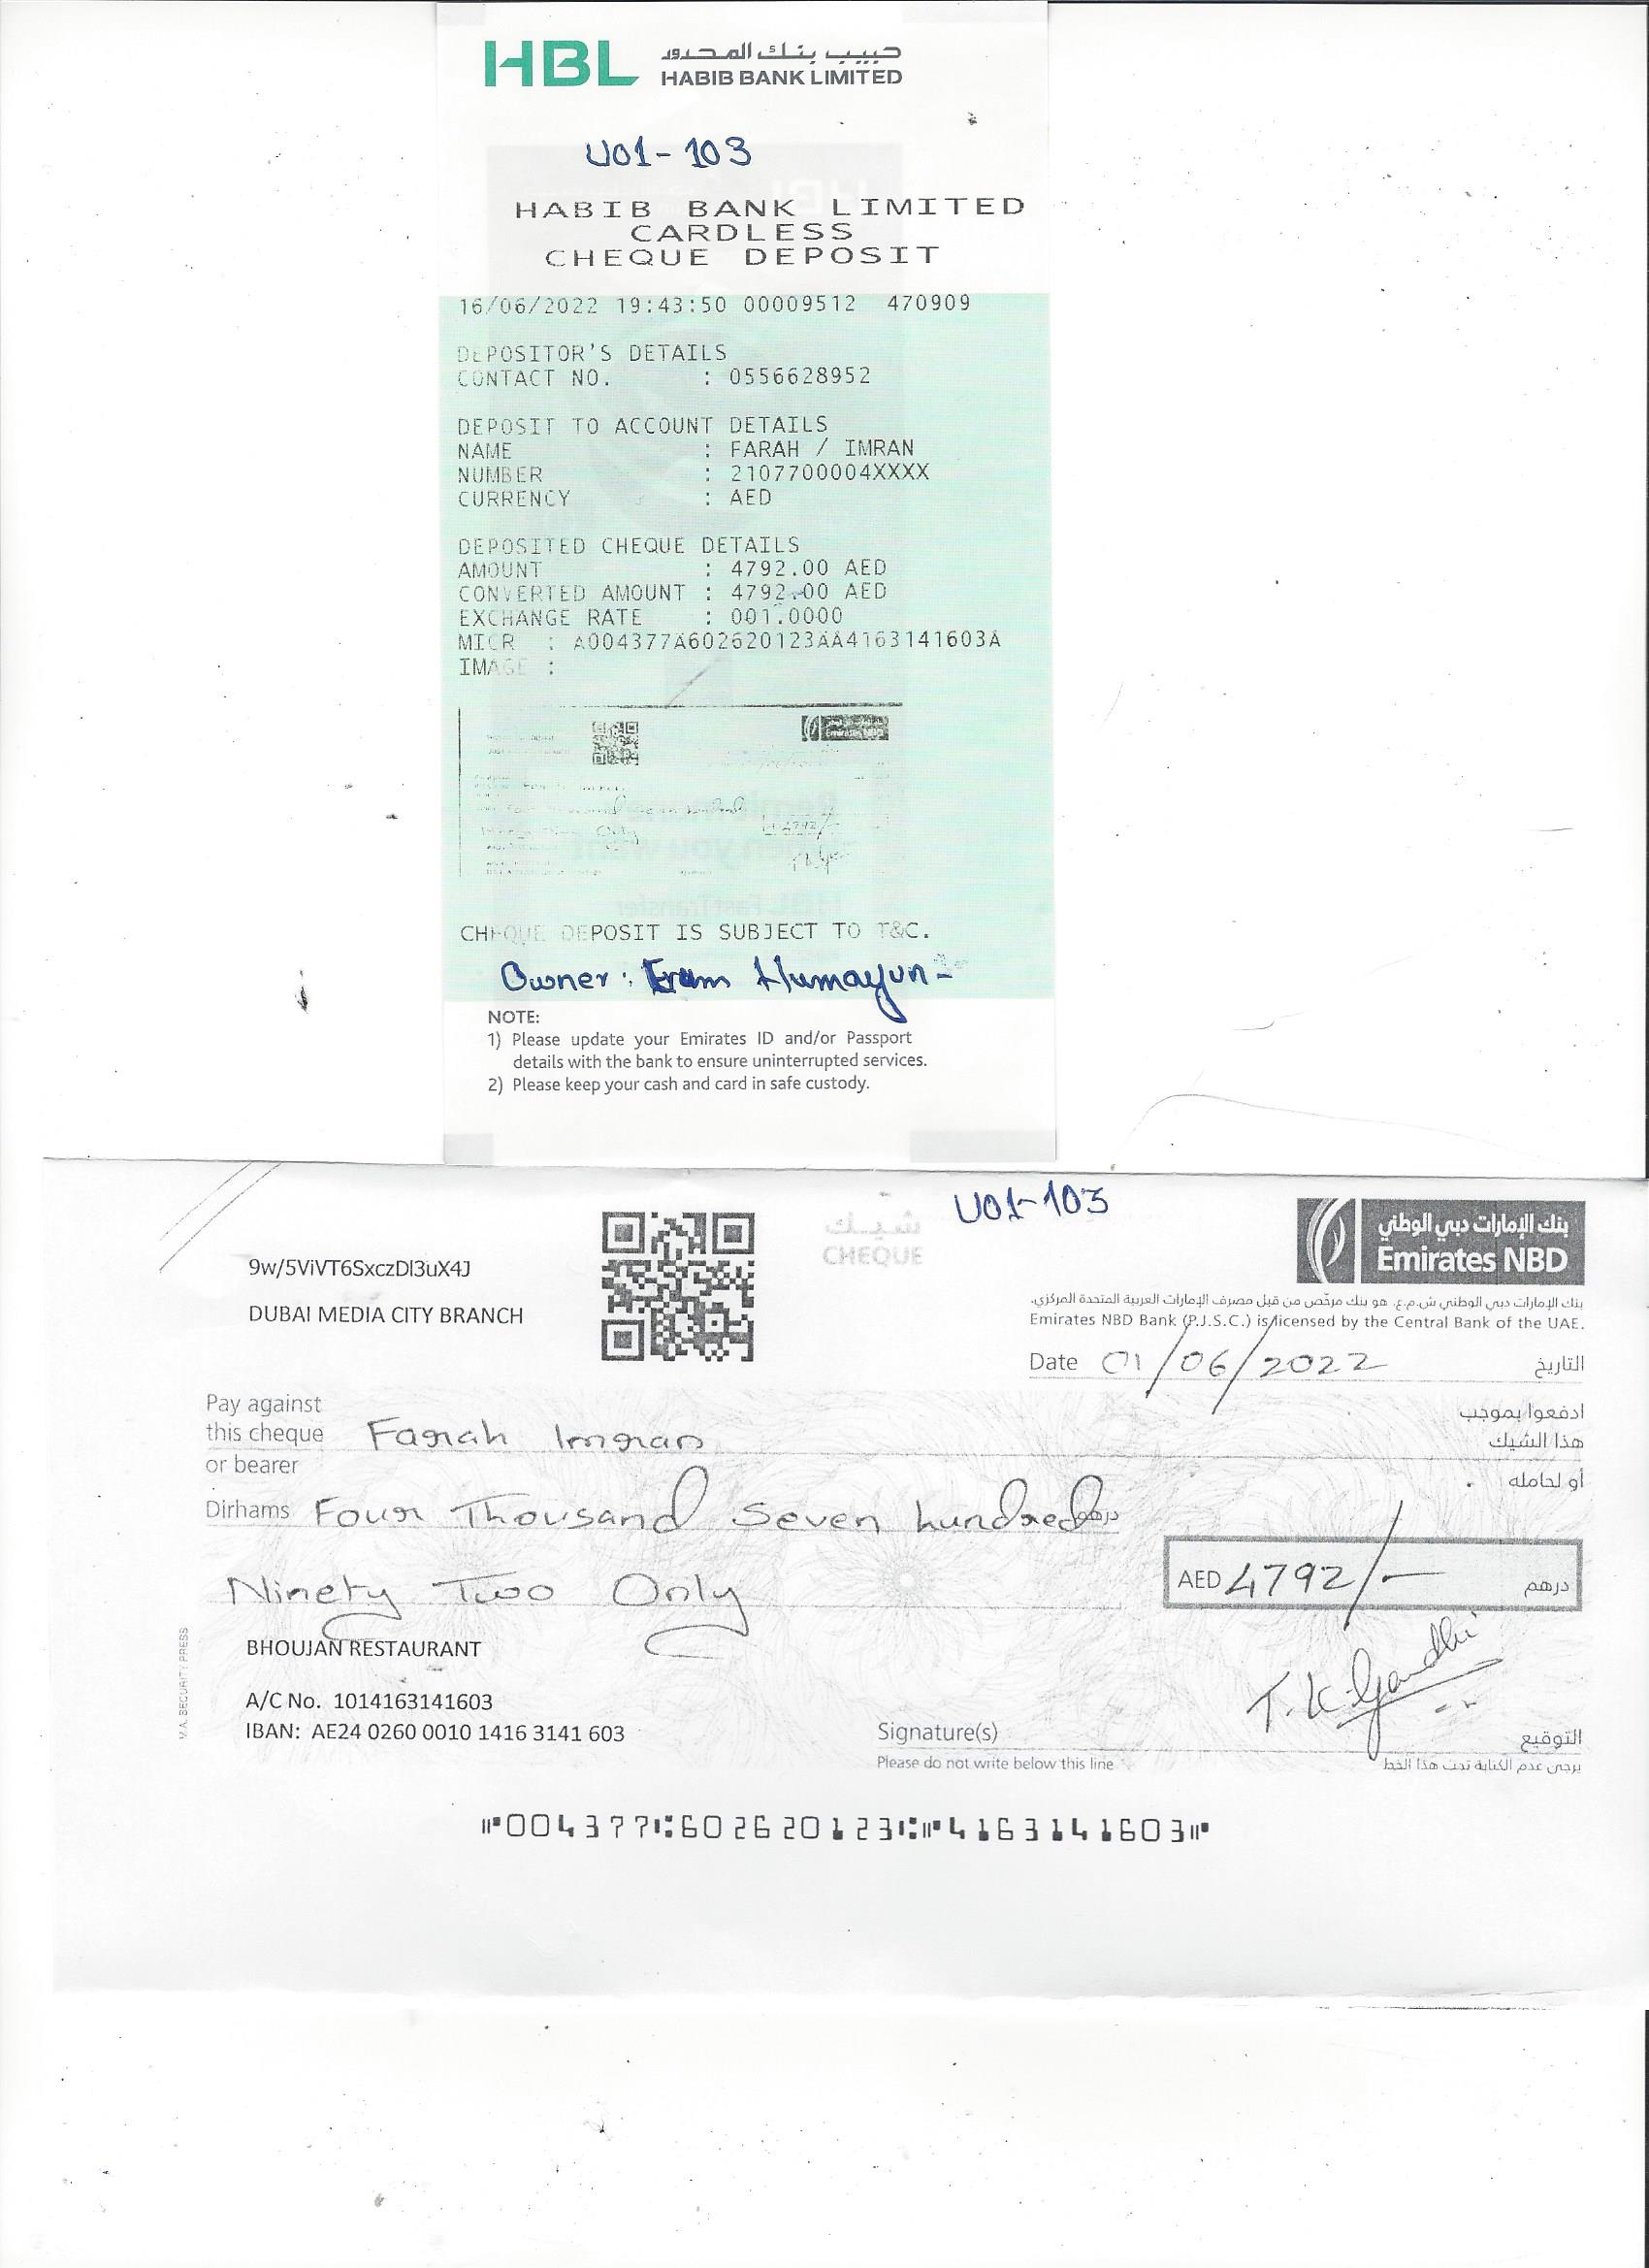 HBL حبيب بنك المحدود
HABIB BANK LIMITED
U01-103
HABIB BANK LIMITED
CARDLESS
CHEQUE DEPOSIT
16/06/2022 19:43:50 00009512 470909
DEPOSITOR'S DETAILS
CONTACT NO. : 0556628952
DEPOSIT TO ACCOUNT DETAILS
NAME : FARAH / IMRAN
NUMBER : 2107700004XXXX
CURRENCY : AED
DEPOSITED CHEQUE DETAILS
AMOUNT : 4792.00 AED
CONVERTED AMOUNT : 4792.00 AED
EXCHANGE RATE : 001.0000
MICR : A004377A602620123AA4163141603A
IMAGE :
Emirates NBD
4792/-
CHEQUE DEPOSIT IS SUBJECT TO T&C.
Owner: Eram Humayun-
NOTE:
1) Please update your Emirates ID and/or Passport
details with the bank to ensure uninterrupted services.
2) Please keep your cash and card in safe custody.
U01-103
شيك
CHEQUE
بنك الإمارات دبي الوطني
Emirates NBD
9w/5ViVT6SxczDl3uX4J
DUBAI MEDIA CITY BRANCH
بنك الإمارات دبي الوطني ش.م.ع. هو بنك مرخّص من قبل مصرف الإمارات العربية المتحدة المركزي.
Emirates NBD Bank (P.J.S.C.) is licensed by the Central Bank of the UAE.
Date 01/06/2022 التاريخ
Pay against ادفعوا بموجب
this cheque Farah Imran هذا الشيك
or bearer أو لحامله
Dirhams Four Thousand Seven hundred درهم
Ninety Two Only AED 4792/- درهم
BHOUJAN RESTAURANT
M.A. SECURITY PRESS
A/C No. 1014163141603
T.K.Gandhi
IBAN: AE24 0260 0010 1416 3141 603
Signature(s) التوقيع
Please do not write below this line يرجى عدم الكتابة تحت هذا الخط
⑈004377⑆602620123⑆⑈4163141603⑈